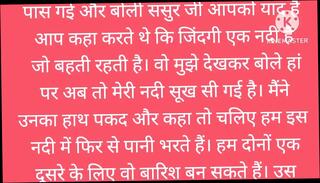 पास गई और बोली ससुर जी आपको याद है
आप कहा करते थे कि जिंदगी एक नदी है
जो बहती रहती है। वो मुझे देखकर बोले हां
पर अब तो मेरी नदी सूख सी गई है। मैंने
उनका हाथ पकद और कहा तो चलिए हम इस
नदी में फिर से पानी भरते हैं। हम दोनों एक
दूसरे के लिए वो बारिश बन सकते हैं। उस